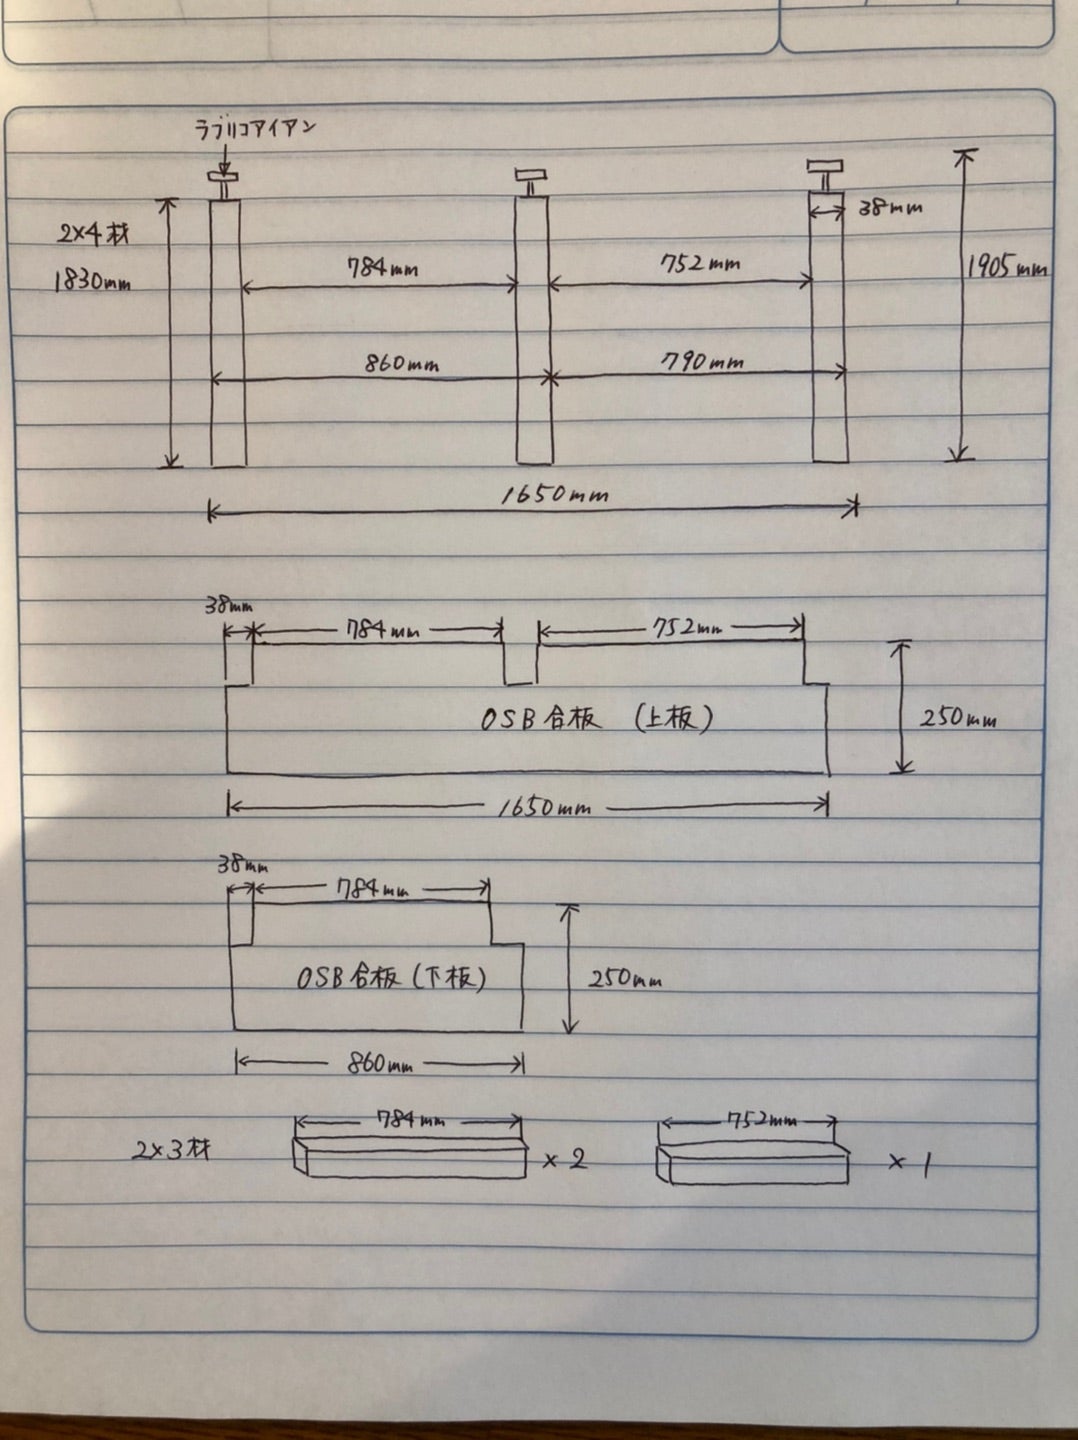 ラブリコアイアン
38mm
2×4材
1830mm
784mm
752mm
1905mm
860mm
790mm
1650mm
38mm
784mm
752mm
OSB合板 (上板)
250mm
1650mm
38mm
784mm
OSB合板(下板)
250mm
860mm
2×3材
784mm
×2
752mm
×1